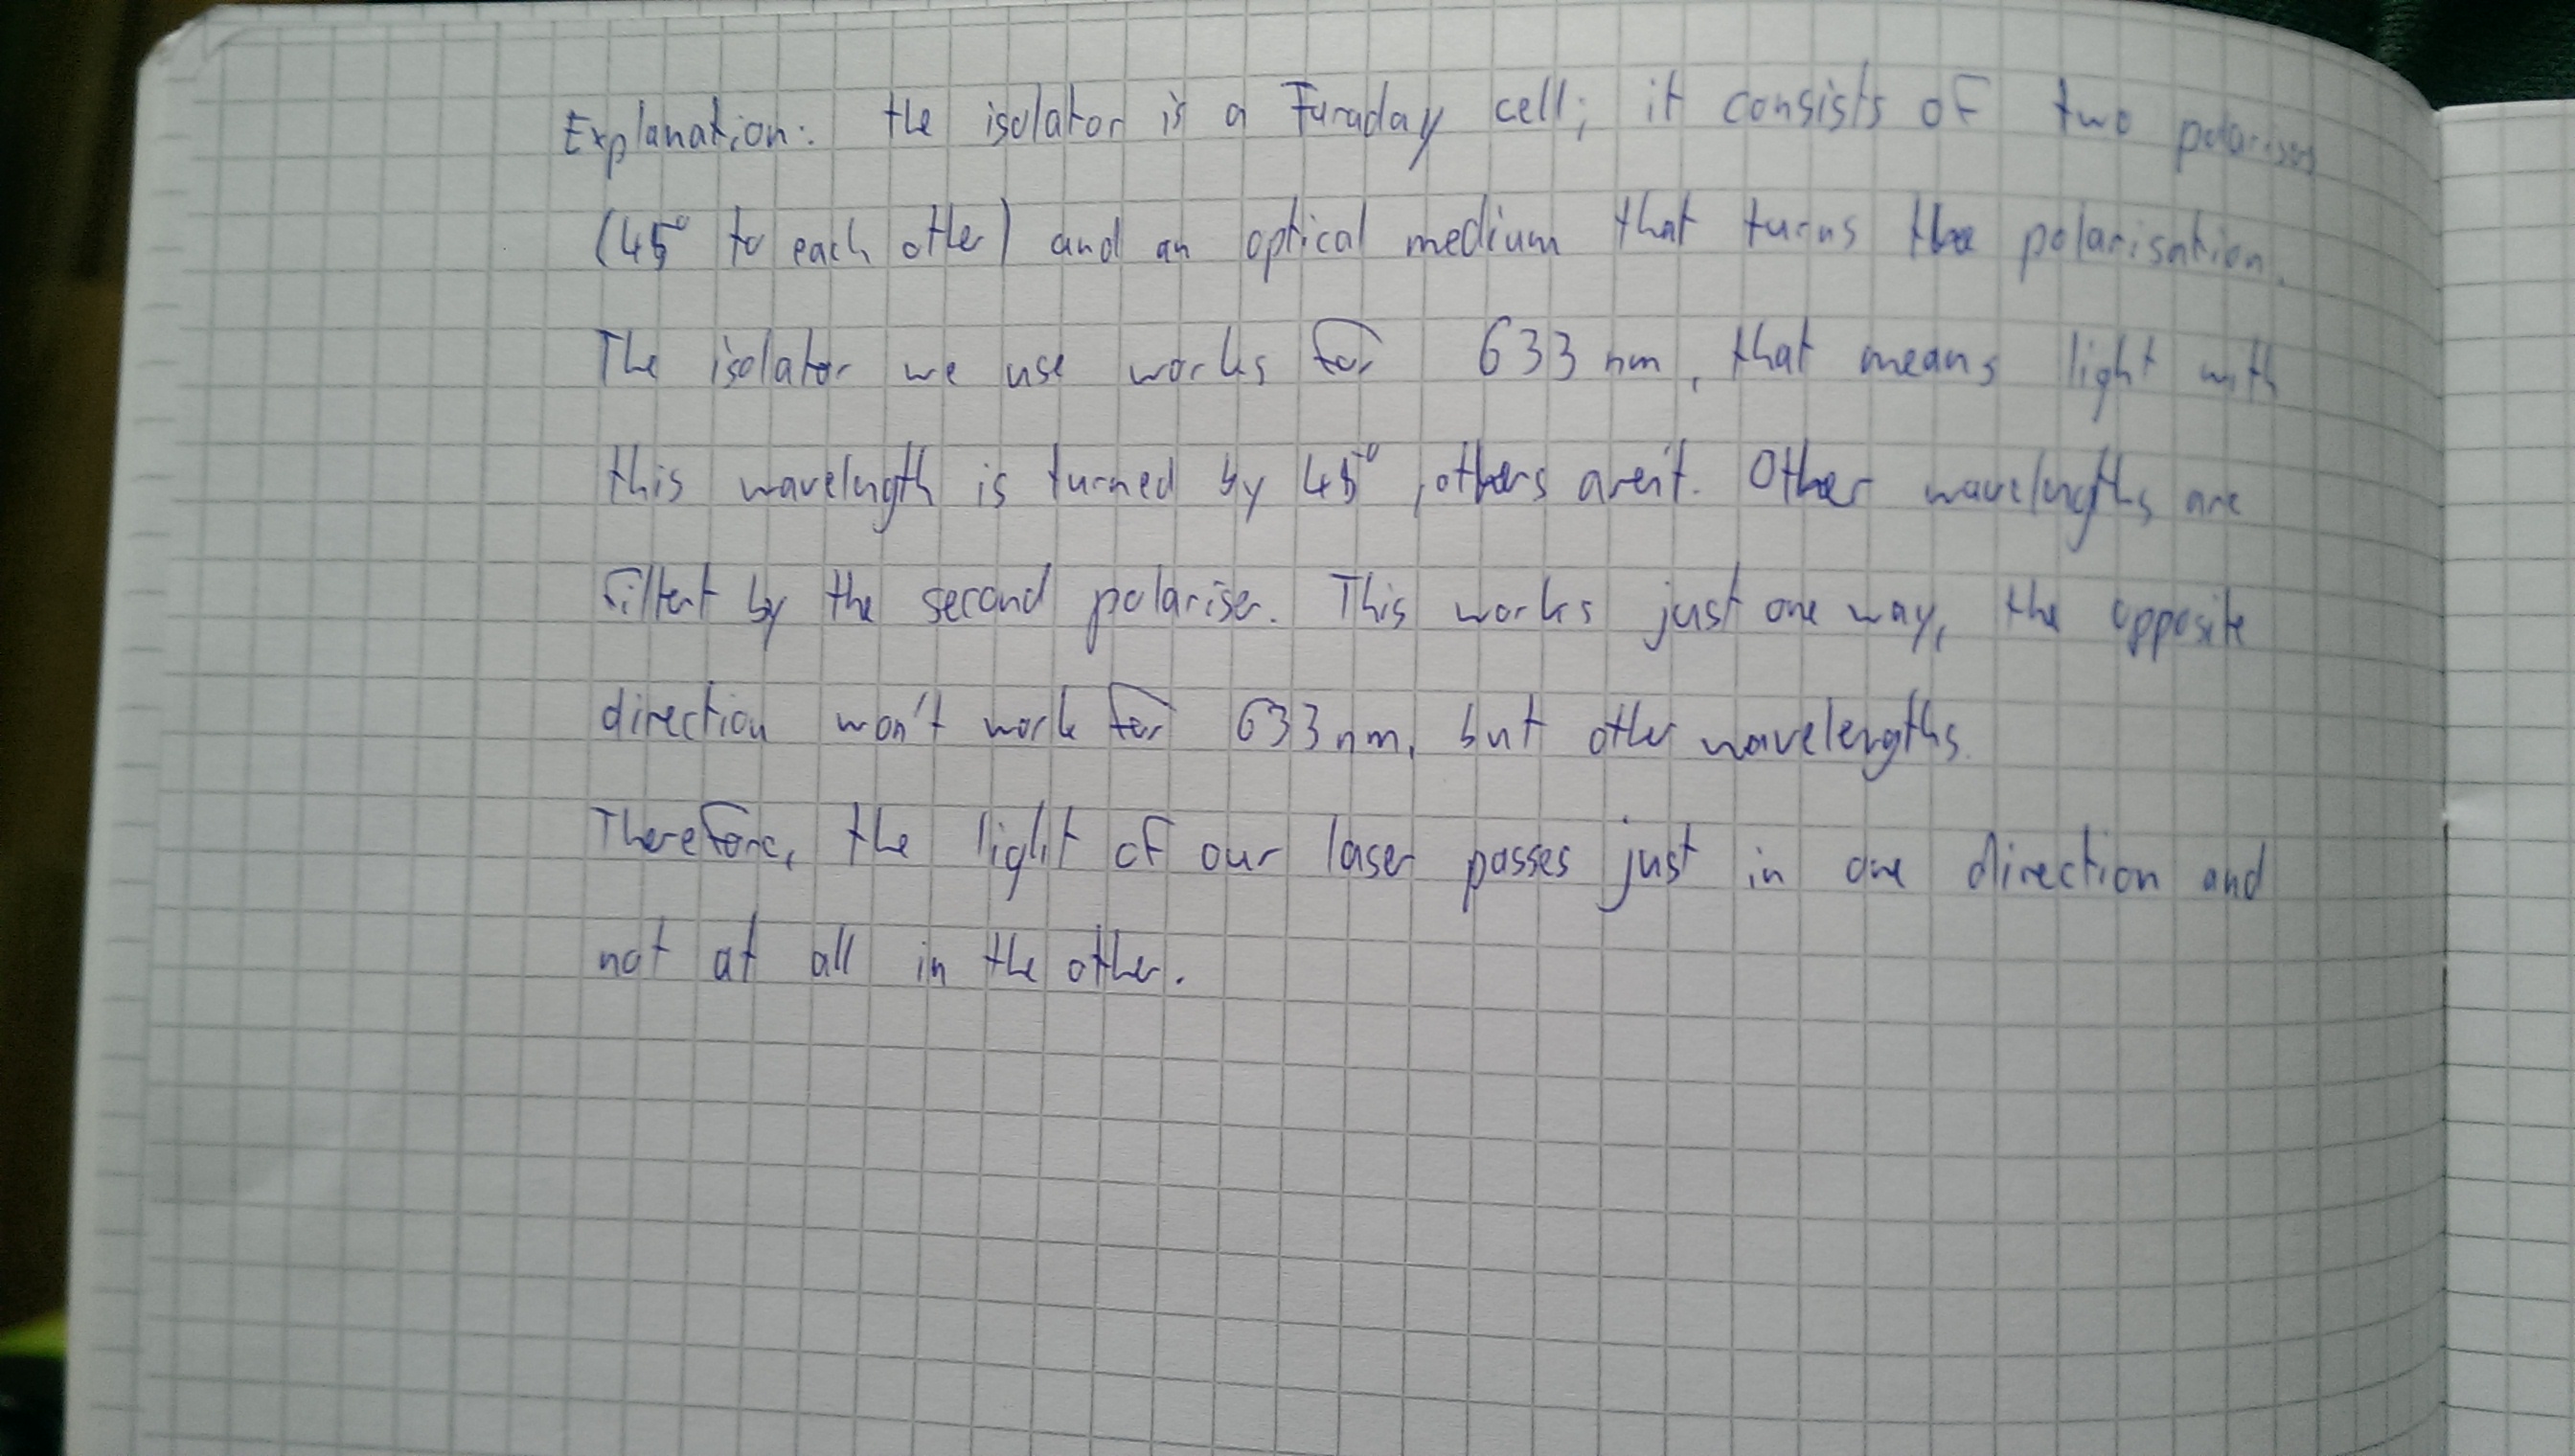 Explanation: the isolator is a Faraday cell; it consists of two polarisers
(45° to each other) and an optical medium that turns the polarisation.
The isolator we use works for 633 nm, that means light with
this wavelength is turned by 45°, others aren't. Other wavelengths are
filtert by the second polariser. This works just one way, the opposite
direction won't work for 633 nm, but other wavelengths.
Therefore, the light of our laser passes just in one direction and
not at all in the other.